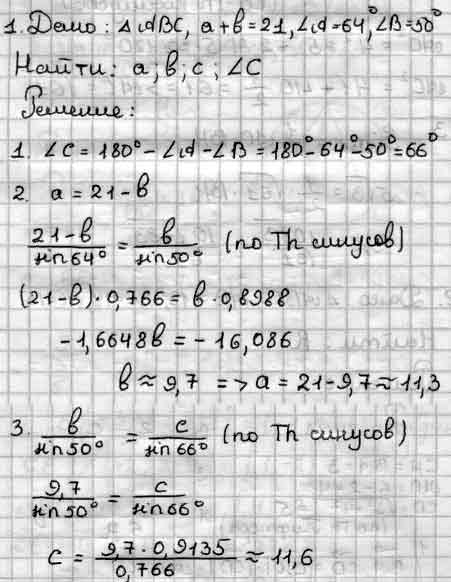 1. Дано: ΔABC, a+b=21, ∠A=64°, ∠B=50°
Найти: a; b; c; ∠C
Решение:
1. ∠C = 180° - ∠A - ∠B = 180° - 64° - 50° = 66°
2. a = 21 - b
(21-b)/sin64° = b/sin50° (по Th синусов)
(21-b)·0,766 = b·0,8988
-1,6648b = -16,086
b ≈ 9,7 => a = 21-9,7 ≈ 11,3
3. b/sin50° = c/sin66° (по Th синусов)
9,7/sin50° = c/sin66°
c = 9,7·0,9135/0,766 ≈ 11,6